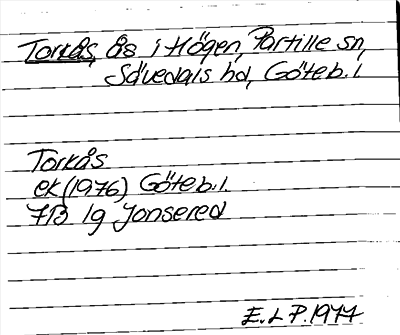 Torkås, ås i Högen, Partille sn,
Sävedals hd, Göteb. l
Torkås
ek (1976) Göteb. l.
7B 1g Jonsered
E. L P. 1977